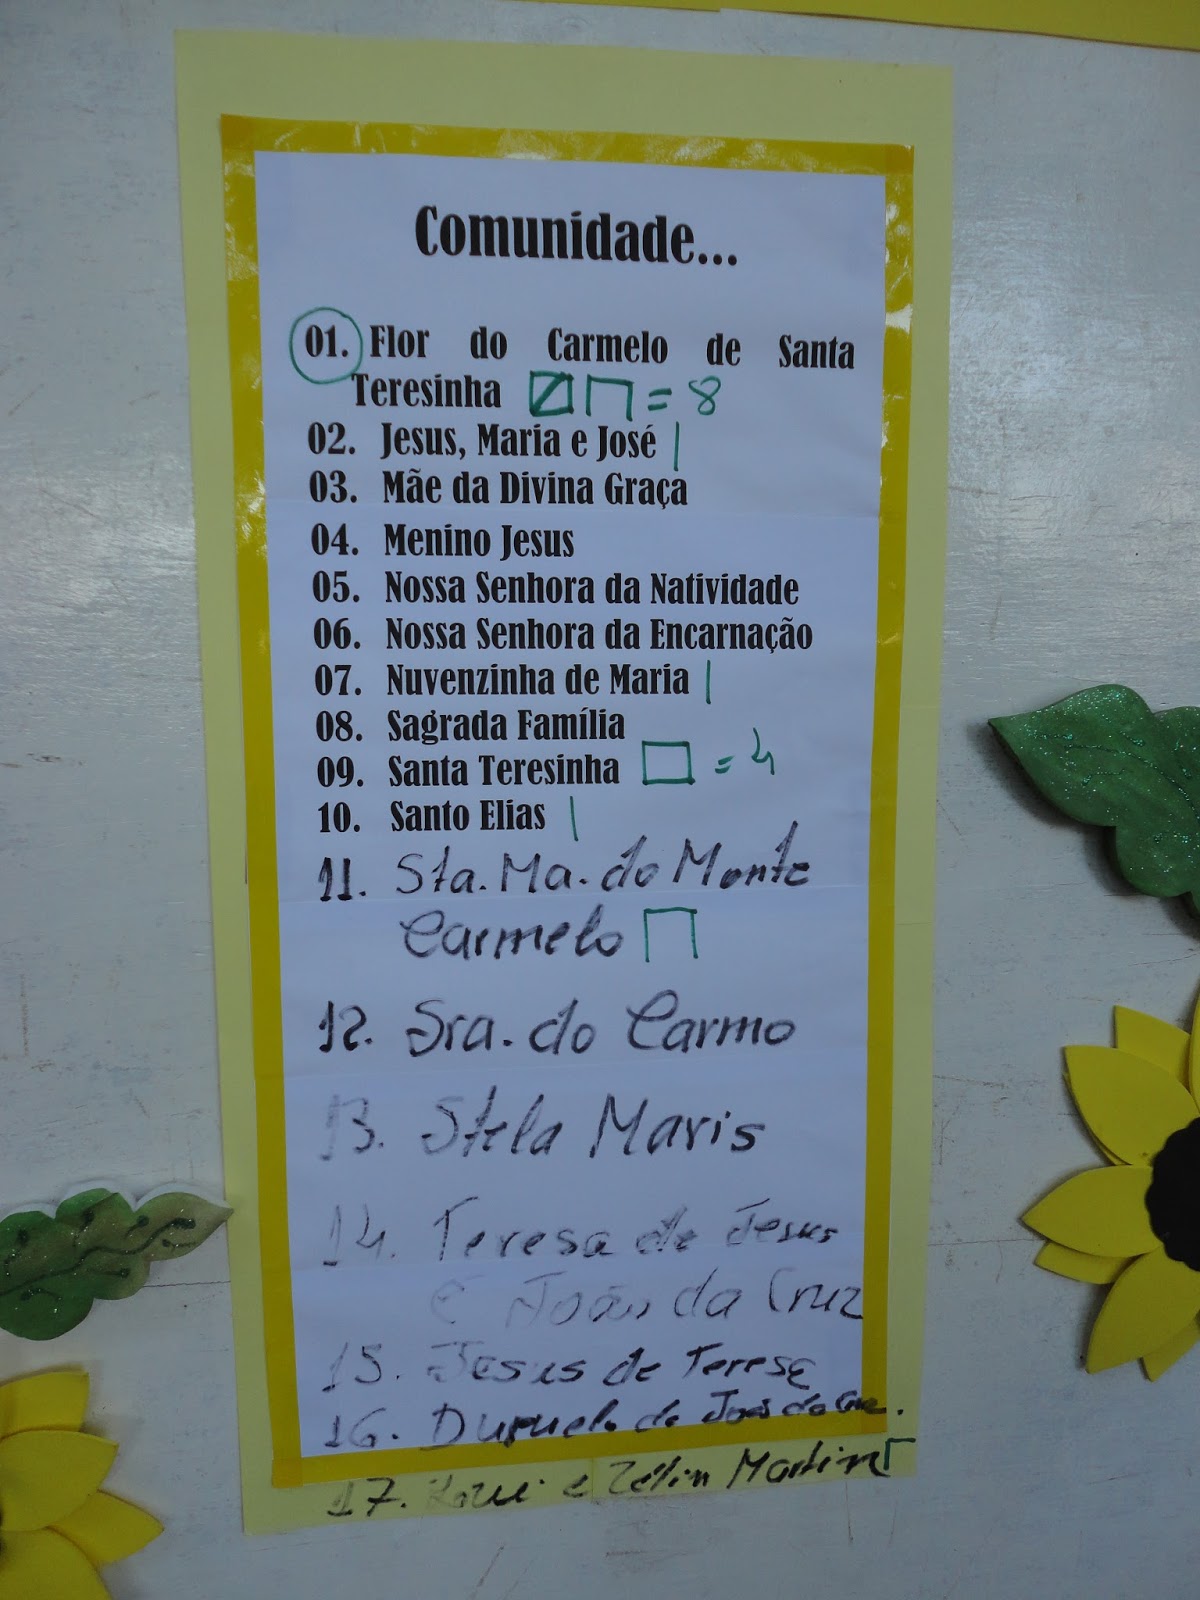 Comunidade...
01. Flor do Carmelo de Santa
Teresinha = 8
02. Jesus, Maria e José |
03. Mãe da Divina Graça
04. Menino Jesus
05. Nossa Senhora da Natividade
06. Nossa Senhora da Encarnação
07. Nuvenzinha de Maria |
08. Sagrada Família
09. Santa Teresinha = 4
10. Santo Elias |
11. Sta. Ma. do Monte
Carmelo
12. Sra. do Carmo
13. Stela Maris
14. Teresa de Jesus
e João da Cruz
15. Jesus de Teresa
16. Duruelo de João da Cruz.
17. e Zélia Martin